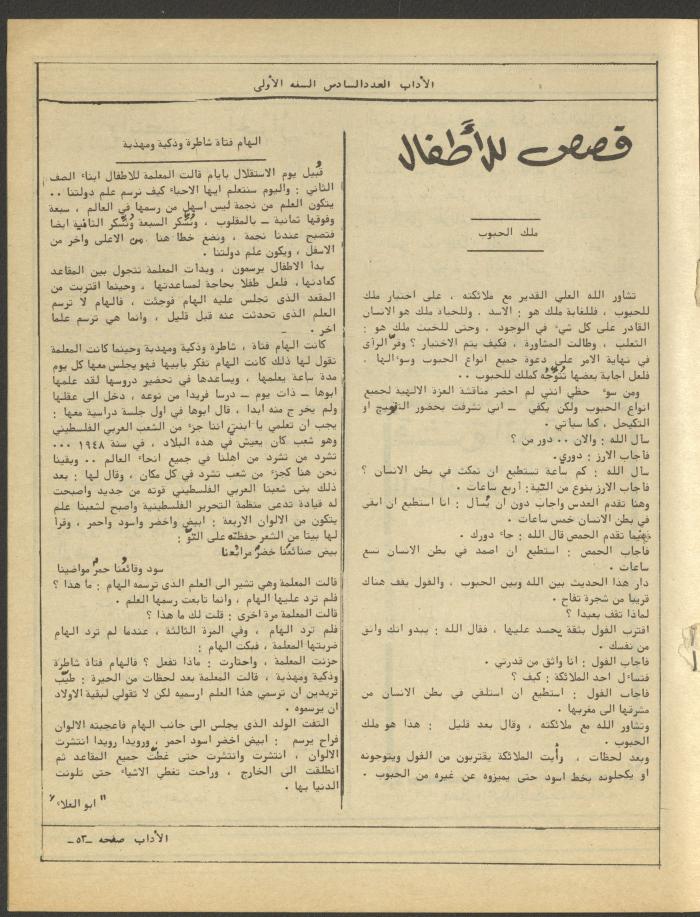 الآداب العدد السادس السنه الأولى
قصص للأطفال
ملك الحبوب
تشاور الله العلي القدير مع ملائكته ، على اختيار ملك
للحبوب ، فللغابة ملك هو : الاسد . وللحياة ملك هو الانسان
القادر على كل شيء في الوجود . وحتى للخبث ملك هو :
الثعلب ، وطالت المشاورة ، فكيف يتم الاختيار ؟ وقرّ الرأى
في نهاية الامر على دعوة جميع انواع الحبوب وسؤالها .
فلعل اجابة بعضها تُتَوِّجُه كملك للحبوب ..
ومن سوء حظي أنني لم احضر مناقشة العزة الالهية لجميع
انواع الحبوب ولكن يكفي ــ اني تشرفت بحضور التتويج او
التكحيل ، كما سيأتي .
سأل الله : والآن .. دور من ؟
فأجاب الارز : دوري .
سأل الله : كم ساعة تستطيع ان تمكث في بطن الانسان ؟
فأجاب الارز بنوع من التيه : أربع ساعات .
وهنا تقدم العدس واجاب دون ان يُسأل : انا استطيع ان ابقى
في بطن الانسان خمس ساعات .
تقدم الحمص قال الله : جاء دورك .
فأجاب الحمص : استطيع ان اصمد في بطن الانسان تسع
ساعات .
دار هذا الحديث بين الله وبين الحبوب ، والفول يقف هناك
قريبا من شجرة تفاح .
لماذا تقف بعيدا ؟
اقترب الفول بثقة يحسد عليها ، فقال الله : يبدو انك واثق
من نفسك .
فأجاب الفول : انا واثق من قدرتي .
فتساءل احد الملائكة : كيف ؟
فأجاب الفول : استطيع ان استلقي في بطن الانسان من
مشرقها الى مغربها .
وتشاور الله مع ملائكته ، وقال بعد قليل : هذا هو ملك
الحبوب .
وبعد لحظات ، رأيت الملائكة يقتربون من الفول ويتوجونه
او يكحلونه بخط اسود حتى يميزوه عن غيره من الحبوب .
الهام فتاة شاطرة وذكية ومهذبة
قُبيل يوم الاستقلال بايام قالت المعلمة للاطفال ابناء الصف
الثاني : واليوم سنتعلم ايها الاحباء كيف نرسم علم دولتنا ..
يتكون العلم من نجمة ليس اسهل من رسمها في العالم ، سبعة
وفوقها ثمانية ــ بالمقلوب ، ونُسَّكر السبعة ونُسَّكر الثمانية ايضا
فتصبح عندنا نجمة ، ونضع خطا هنا من الاعلى وآخر من
الاسفل ، ويكون علم دولتنا .
بدأ الاطفال يرسمون ، وبدأت المعلمة تتجول بين المقاعد
كعادتها ، فلعل طفلا بحاجة لمساعدتها ، وحينما اقتربت من
المقعد الذى تجلس عليه الهام فوجئت ، فالهام لا ترسم
العلم الذى تحدثت عنه قبل قليل ، وانما هي ترسم علما
اخر .
كانت الهام فتاة ، شاطرة وذكية ومهذبة وحينما كانت المعلمة
تقول لها ذلك كانت الهام تفكر بأبيها فهو يجلس معها كل يوم
مدة ساعة يعلمها ، ويساعدها في تحضير دروسها لقد علمها
ابوها ــ ذات يوم ــ درسا فريدا من نوعه ، دخل الى عقلها
ولم يخرج منه ابدا ، قال ابوها في اول جلسة دراسية معها :
يجب ان تعلمي يا ابنتي اننا جزء من الشعب العربي الفلسطيني
وهو شعب كان يعيش في هذه البلاد ، في سنة ١٩٤٨ ...
تشرد من تشرد من اهلنا في جميع انحاء العالم .. وبقينا
نحن هنا كجزء من شعب تشرد في كل مكان ، وقال لها : بعد
ذلك بنى شعبنا العربي الفلسطيني قوته من جديد واصبحت
له قيادة تدعى منظمة التحرير الفلسطينية واصبح لشعبنا علم
يتكون من الالوان الاربعة : ابيض واخضر واسود واحمر ، وقرأ
لها بيتا من الشعر حفظته على التوّ :
بيض صنائعُنا خضرٌ مرابُعنا
سود وقائعُنا حمرٌ مواضينا
قالت المعلمة وهي تشير الى العلم الذى ترسمه الهام : ما هذا ؟
فلم ترد عليها الهام ، وانما تابعت رسمها العلم .
قالت المعلمة مرة اخرى : قلت لك ما هذا ؟
فلم ترد الهام ، وفي المرة الثالثة ، عندما لم ترد الهام
ضربتها المعلمة ، فبكت الهام :
حزنت المعلمة ، واحتارت : ماذا تفعل ؟ فالهام فتاة شاطرة
وذكية ومهذبة ، قالت المعلمة بعد لحظات من الحيرة : طيّب
تريدين ان ترسمي هذا العلم ارسميه لكن لا تقولي لبقية الاولاد
ان يرسموه .
التفت الولد الذى يجلس الى جانب الهام فأعجبته الالوان
فراح يرسم : ابيض اخضر اسود احمر ، ورويدا رويدا انتشرت
الالوان ، انتشرت وانتشرت حتى غطّت جميع المقاعد ثم
انطلقت الى الخارج ، وراحت تغطي الاشياء حتى تلونت
الدنيا بها .
" ابو العلاء "
الآداب صفحه ــ٥٣ــ